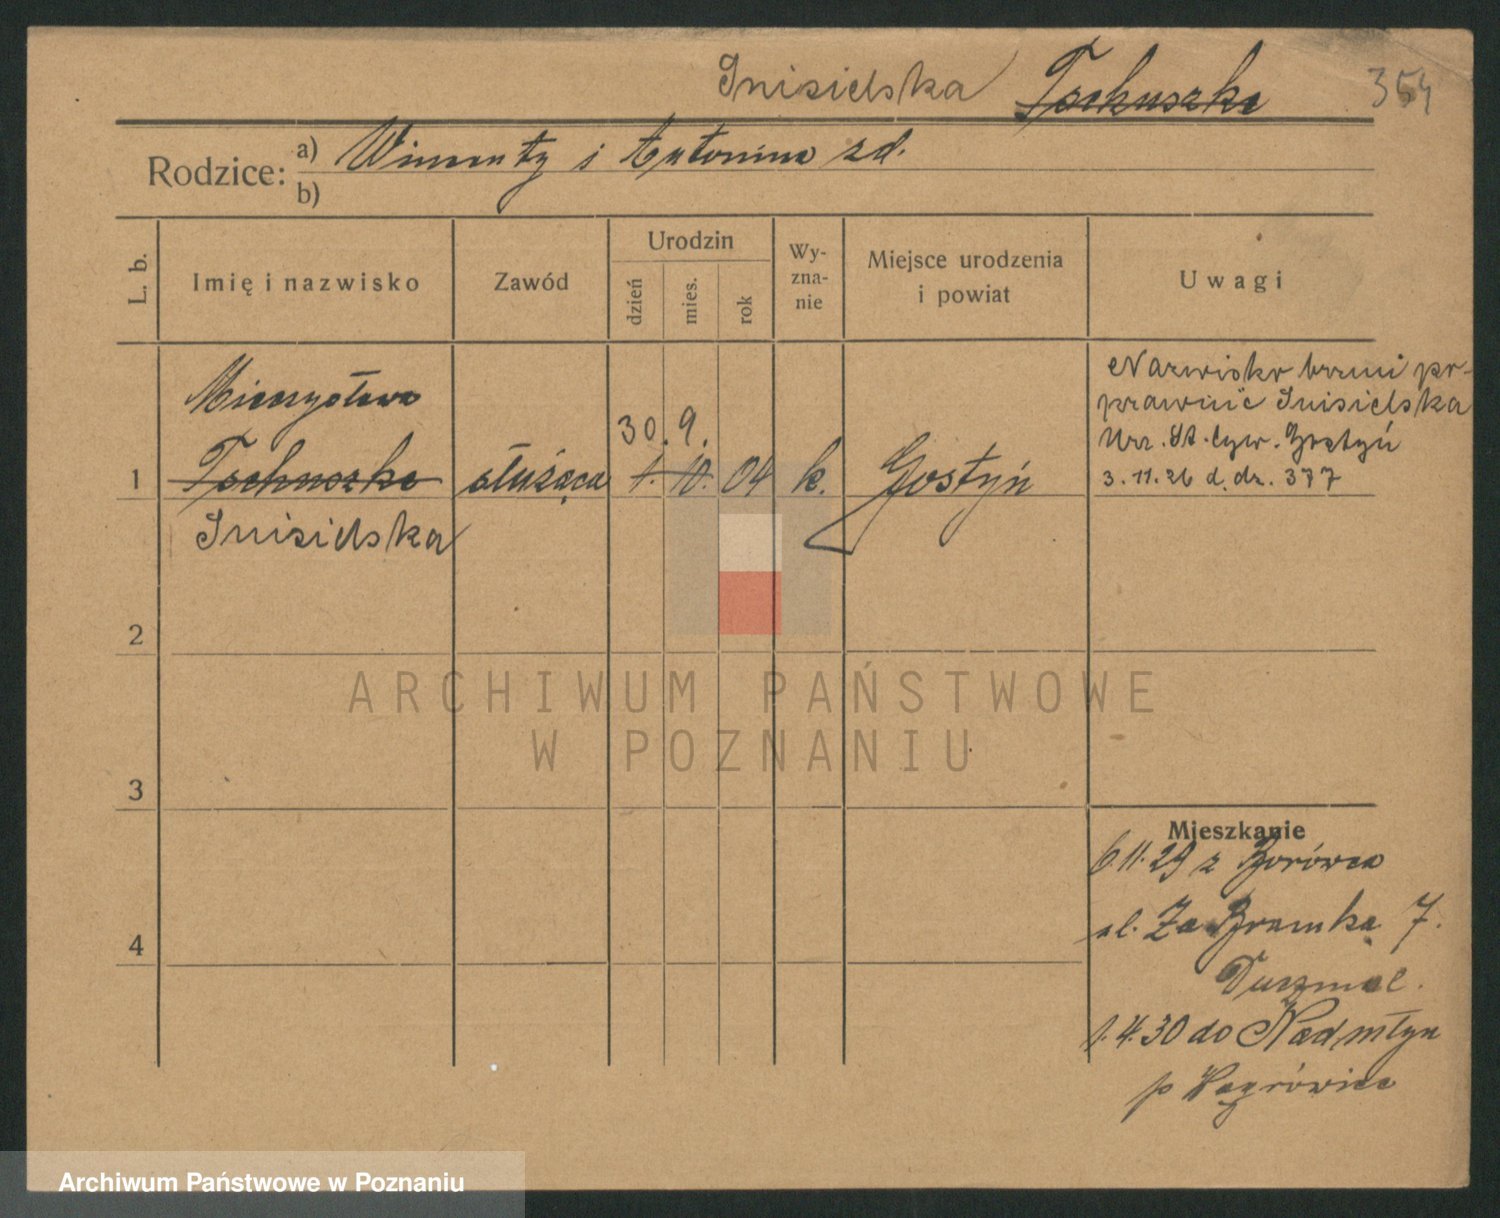 Snisielska Tschuszke 354
Rodzice: a) Wincenty i Antonina zd.
b)
L. b. Imię i nazwisko Zawód Urodzin dzień mies. rok Wyznanie Miejsce urodzenia i powiat Uwagi
Mieczysława
30. 9.
1 Tschuszke służąca 1. 10. 04 k. Gostyń
Snisielska
Nazwisko brzmi po-
prawnie Snisielska
Urz. St. Cyw. Gostyń
3.11.26 d. dz. 377
2
3
4
Mieszkanie
6.11.29 z Borówca
ul. Za Bramką 7.
1.4.30 do Nadmłyn
p Wągrówiec
ARCHIWUM PAŃSTWOWE
W POZNANIU
Archiwum Państwowe w Poznaniu